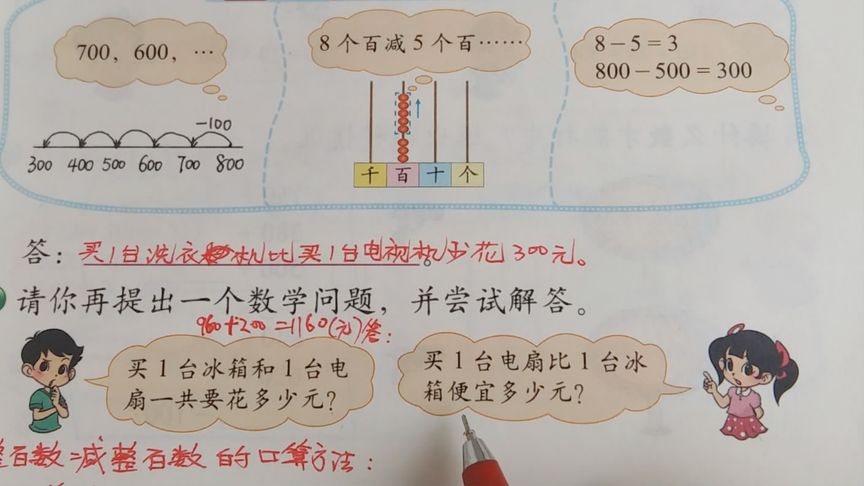 700，600，…
8个百减5个百……
8－5＝3
800－500＝300
－100
300 400 500 600 700 800
千 百 十 个
答：买1台洗衣机比买1台电视机少花300元。
请你再提出一个数学问题，并尝试解答。
960+200=1160(元)答：
买1台冰箱和1台电
扇一共要花多少元？
买1台电扇比1台冰
箱便宜多少元？
整百数减整百数的口算方法：